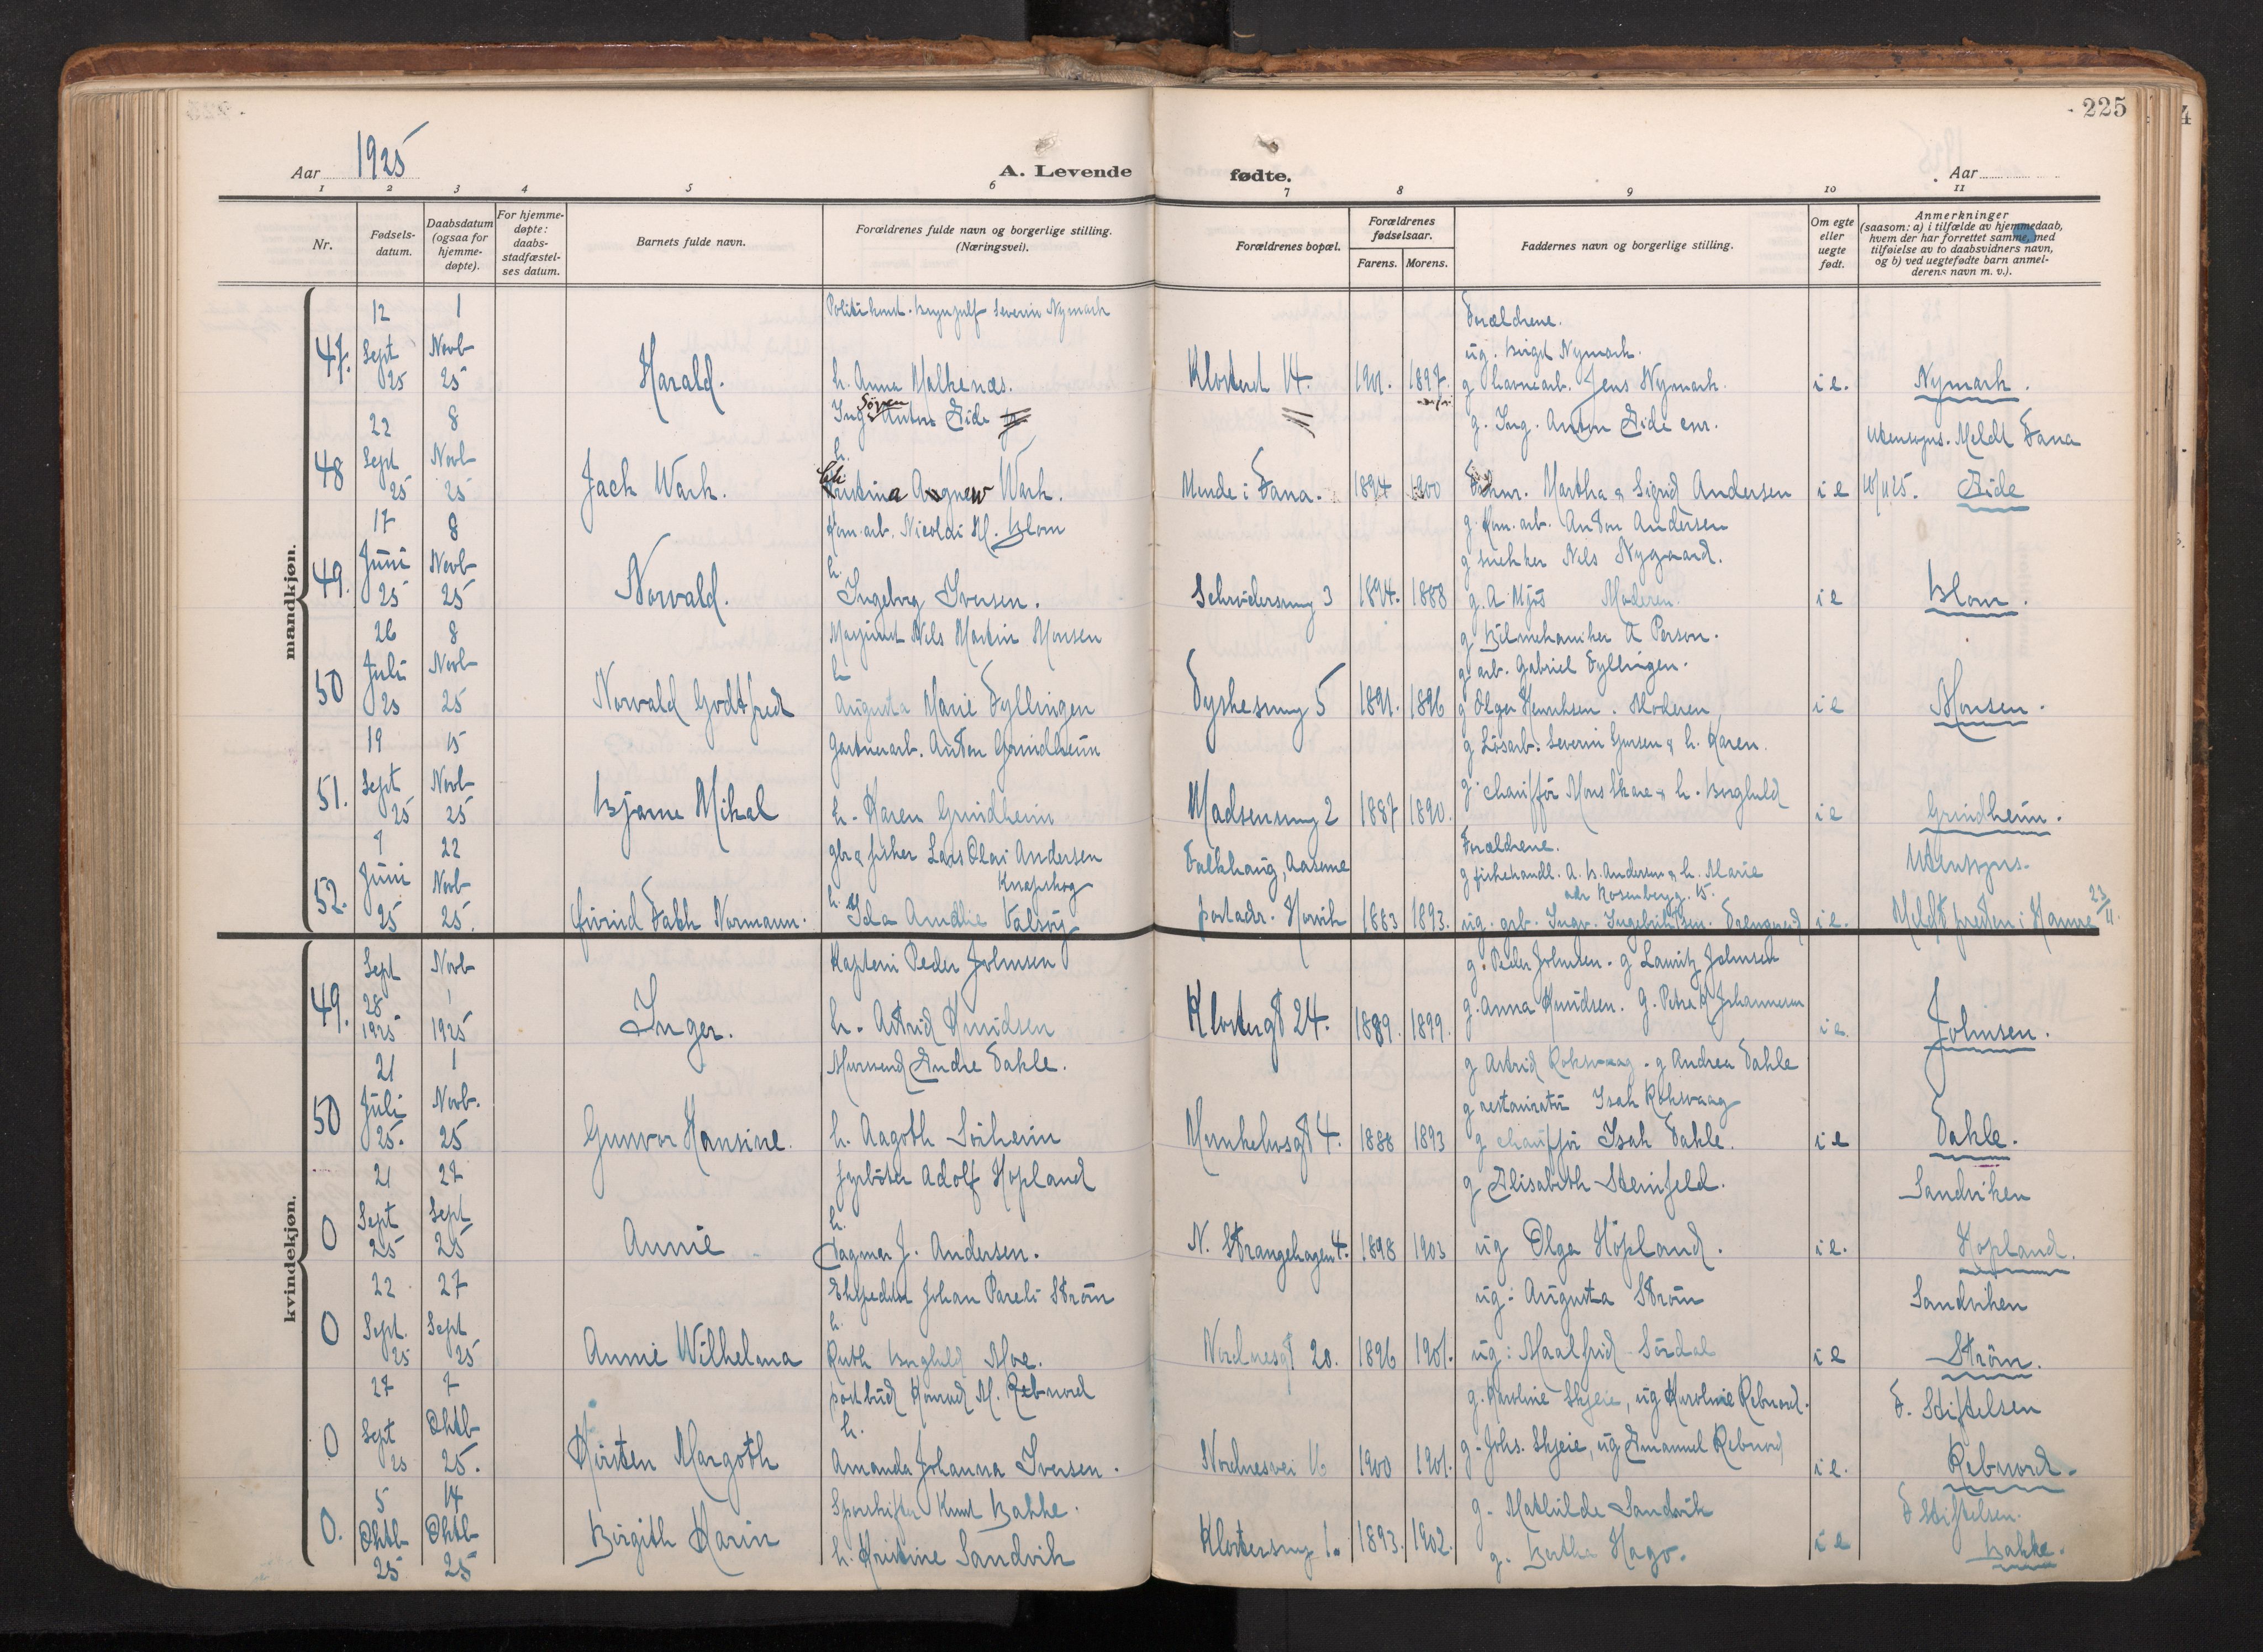 225
Aar 1925
A. Levende fødte.
Aar
1 2 3 4 5 6 7 8 9 10 11
Nr.
Fødsels-
datum.
Daabsdatum
(ogsaa for
hjemme-
døpte).
For hjemme-
døpte:
daabs-
stadfæstel-
ses datum.
Barnets fulde navn.
Forældrenes fulde navn og borgerlige stilling.
(Næringsvei).
Forældrenes bopæl.
Forældrenes
fødselsaar.
Farens. Morens.
Faddernes navn og borgerlige stilling.
Om egte
eller
uegte
født.
Anmerkninger
(saasom: a) i tilfælde av hjemmedaab,
hvem der har forrettet samme, med
tilføielse av to daabsvidners navn,
og b) ved uegtefødte barn anmel-
derens navn m. v.).
mandkjøn.
47. 12 Sept 25
1 Novb 25
Harald.
Severin Nymark
h. Anna Malkenæs.
Klosteret 14. 1901. 1897.
Forældrene.
ug. Birgit Nymark.
g havnearb. Jens Nymark.
i e. Nymark.
48 22 Sept 25
8 Novb 25
Jack Wark.
Ing. Søren Anton Eide
h.
Agnew Wark.
Minde i Fana. 1894 1900
g. Ing. Anton Eide enr.
Martha & Sigrid Andersen
i e
Utensogns. Meldt Fana
Eide
49. 17 Juni 25
8 Novb 25
Norvald.
Kom. arb. Nicolai M. Blom
h.
Ingeborg Iversen.
3 1894. 1888
g. Kom. arb. Anton Andersen
g snekker Nels Nygaard.
g. A Mjøs Moderen.
i e Blom.
50 26 Juli 25
8 Novb 25
Norvald Godtfred
Maskinist Nils Martin Monsen
h
Augusta Marie Fyllingen
5 1891. 1896
g Bilmekaniker A Person.
g arb. Gabriel Fyllingen.
g Olger Henriksen. Moderen
i e Monsen.
51. 19 Sept 25
15 Novb 25
Bjarne Mikal
Gartnerarb. Anton Grindheim
h. Karen Grindheim
Madsensmug 2 1887 1890.
g Løsarb. Severin & h. Karen.
g chauffør Mons Skare & h. Borghild
i e Grindheim.
52. 7 Juni 25
22 Novb 25.
Øivind Fakh Normann.
gbr & fisker Lars Olai Andersen
Knapskog
h. Ida Amalie Valsøy
Falkhaug,
postadr. Horvik 1883 1893.
Forældrene.
g fiskehandl. A. B. Andersen & h. Marie
adr Rosenbergg. 15.
ug. Ingebrigtsen.
i e.
Utensogns.
Meldt presten i Hamre 23/11
kvindekjøn.
49. Sept 28 1925
Novb 1 1925
Inger.
Kaptein Peder Johnsen
h. Astrid Knudsen
Klostergt 24. 1889. 1899.
g. Peder Johnsen. g Lauritz Johnsen
g. Anna Knudsen. G. Petra K Johannesen
i e. Johnsen.
50 21 Juli 25.
1 Novb. 25
Gunvor Hansine.
Murmend Endre Dahle.
h. Aagoth Sørheim
Munkebusgt 4. 1888 1893
g Astrid Roksvaag. g Andrea Dahle
g restauratør Isak Roksvaag
g chauffør Isak Dahle.
i e Dahle.
0 21 Sept 25
27 Sept 25
Annie
fyrbøter Adolf Hopland
h.
Dagmar J. Andersen.
N. Strangehagen 4. 1898 1903
g Elisabeth Steinfeld.
ug Olga Hopland.
i e.
Sandviken
Hopland.
0 22 Sept. 25
27 Sept 25
Annie Wilhelma
Ekspeditør Johan Pareli Strøm
h.
Ruth Borghild Moe.
Nordnesgt 20. 1896 1901.
ug: Augusta Strøm
ug: Maalfrid Sørdal
i e
Sandviken
Strøm.
0 27 Sept 25
7 Oktb 25.
Kirsten Margoth
postbud Konrad M. Rebnord
h.
Amanda Johanna Iversen.
Nordnesvei 16 1900 1901.
g. Karoline Skjeie, ug Karoline Rebnord.
g. Johs. Skjeie, ug Emanuel Rebnord
i e.
F. Stiftelsen
Rebnord.
0. 5 Oktb 25
14 Oktb 25
Birgith Karin
Sporskifter Knut Bakke.
h. Kristine Sandvik
Klostersmug 1. 1893. 1902.
g. Mathilde Sandvik
g. Bertha Hago.
i e
F Stiftelsen.
Bakke.